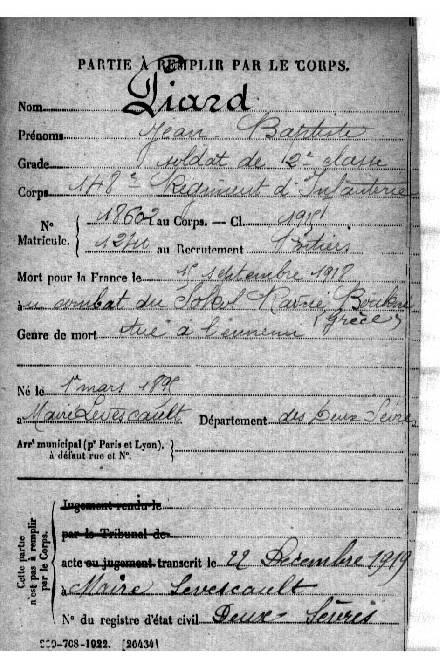 PARTIE À REMPLIR PAR LE CORPS.
Nom Piard
Prénoms Jean Baptiste
Grade soldat de 2e classe
Corps 148e Régiment d'Infanterie
N° Matricule. { 18602 au Corps. — Cl. 1918
1240 au Recrutement Poitiers
Mort pour la France le 1er septembre 1918
au combat du Sokol
(Grèce)
Genre de mort tué à l'ennemi
Né le 1er mars
à Mairé Levescault Département des Deux Sèvres
Arrt municipal (pr Paris et Lyon), } à défaut rue et N°.
Cette partie n'est pas à remplir par le Corps.
Jugement rendu le
par le Tribunal de
acte ou jugement transcrit le 22 Décembre 1919
à Maire Levescault
N° du registre d'état civil Deux-Sèvres
[26434]